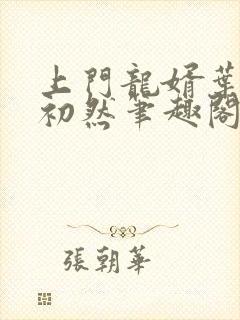 上門龍婿葉
初然筆趣閣
張朝華